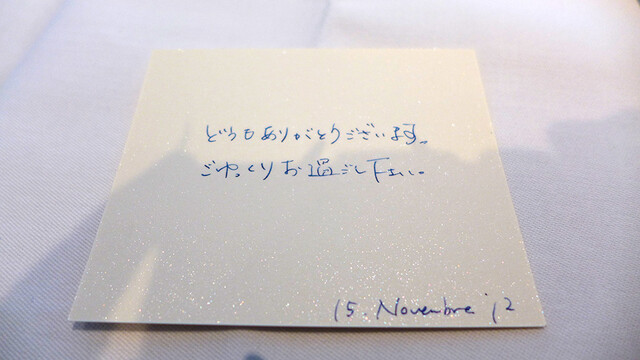 どうもありがとうございます。
ごゆっくりお過ごし下さい。
15. Novembre '12